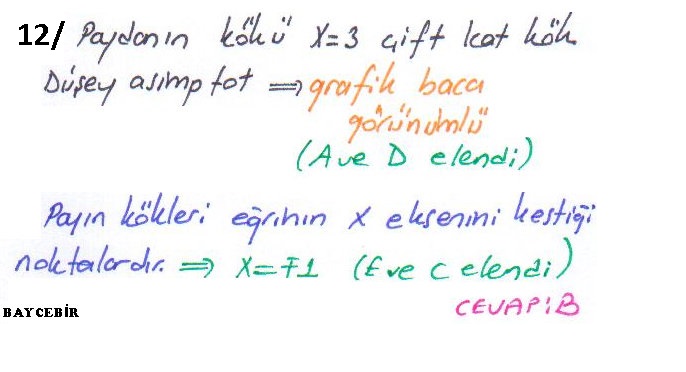 12/ Paydanın kökü x=3 çift kat kök
Düşey asımptot ⇒ grafik baca
görünümlü
(A ve D elendi)
Payın kökleri eğrinin x eksenini kestiği
noktalardır. ⇒ x=∓1 (E ve C elendi)
CEVAP: B
BAYCEBİR